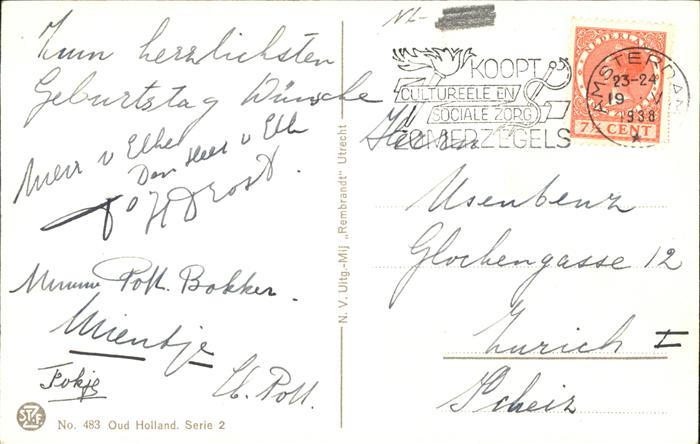 Zum herzlichsten
Geburtstag Wünsche
Meer v Elke
Den Heer v Elk
Drost.
Pott. Bakker.
Mientje
Fokje
Pott.
No. 483 Oud Holland. Serie 2
N. V. Uitg.-Mij „Rembrandt” Utrecht
NL-
KOOPT
CULTUREELE EN
SOCIALE ZORG
ZOMERZEGELS
NEDERLAND
7½ CENT
AMSTERDAM
23-24
19 V
1938
Herrn
Usenbenz
Glochengasse 12
Zurich I
Scheiz